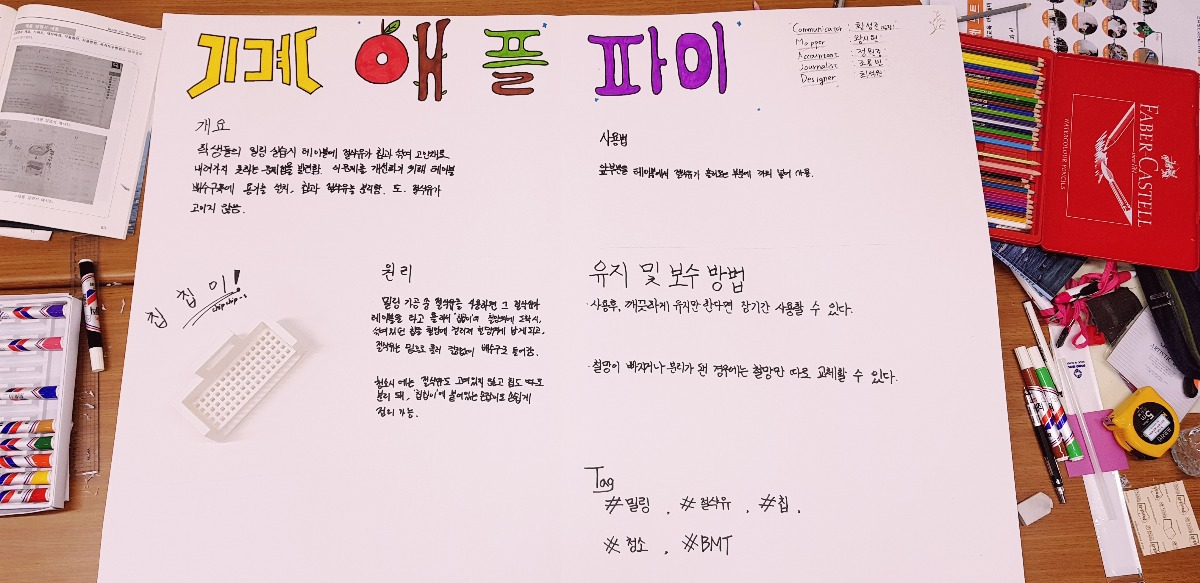 기계 애플 파이
Communicator : 황성준
Mapper : 왕시현
Accountant : 전원종
Journalist : 조용빈
Designer : 최석원
개요
학생들의 밀링 실습시 테이블에 절삭유가 칩과 섞여 고인채로
내려가지 못하는 문제점을 발견함. 이 문제를 개선하기 위해 테이블
배수구쪽에 용기를 설치, 칩과 절삭유를 분리함. 또, 절삭유가
고이지 않음.
사용법
앞부분을 테이블에서 절삭유가 흘러오는 부분에 끼워 넣어 사용.
칩칩이!
chip chip-i
원리
밀링 가공 중 절삭유를 사용하면 그 절삭유가
테이블을 타고 흘러서 '칩칩이'의 철망쪽에 도착시,
섞여있던 칩은 철망에 걸러져 철망위에 남게 되고,
절삭유는 밑으로 흘러 배수구로 들어감.
청소시 에는 절삭유도 고여있지 않고 칩도 따로
분리 돼, '칩칩이'에 붙어있는 손잡이로 손쉽게
정리 가능.
유지 및 보수 방법
·사용후, 깨끗하게 유지만 한다면 장기간 사용할 수 있다.
·철망이 빠지거나 분리가 된 경우에는 철망만 따로 교체할 수 있다.
Tag
#밀링 , #절삭유 , #칩 ,
#청소 , #BMT
FABER-CASTELL
WATERCOLOUR PENCILS
5m